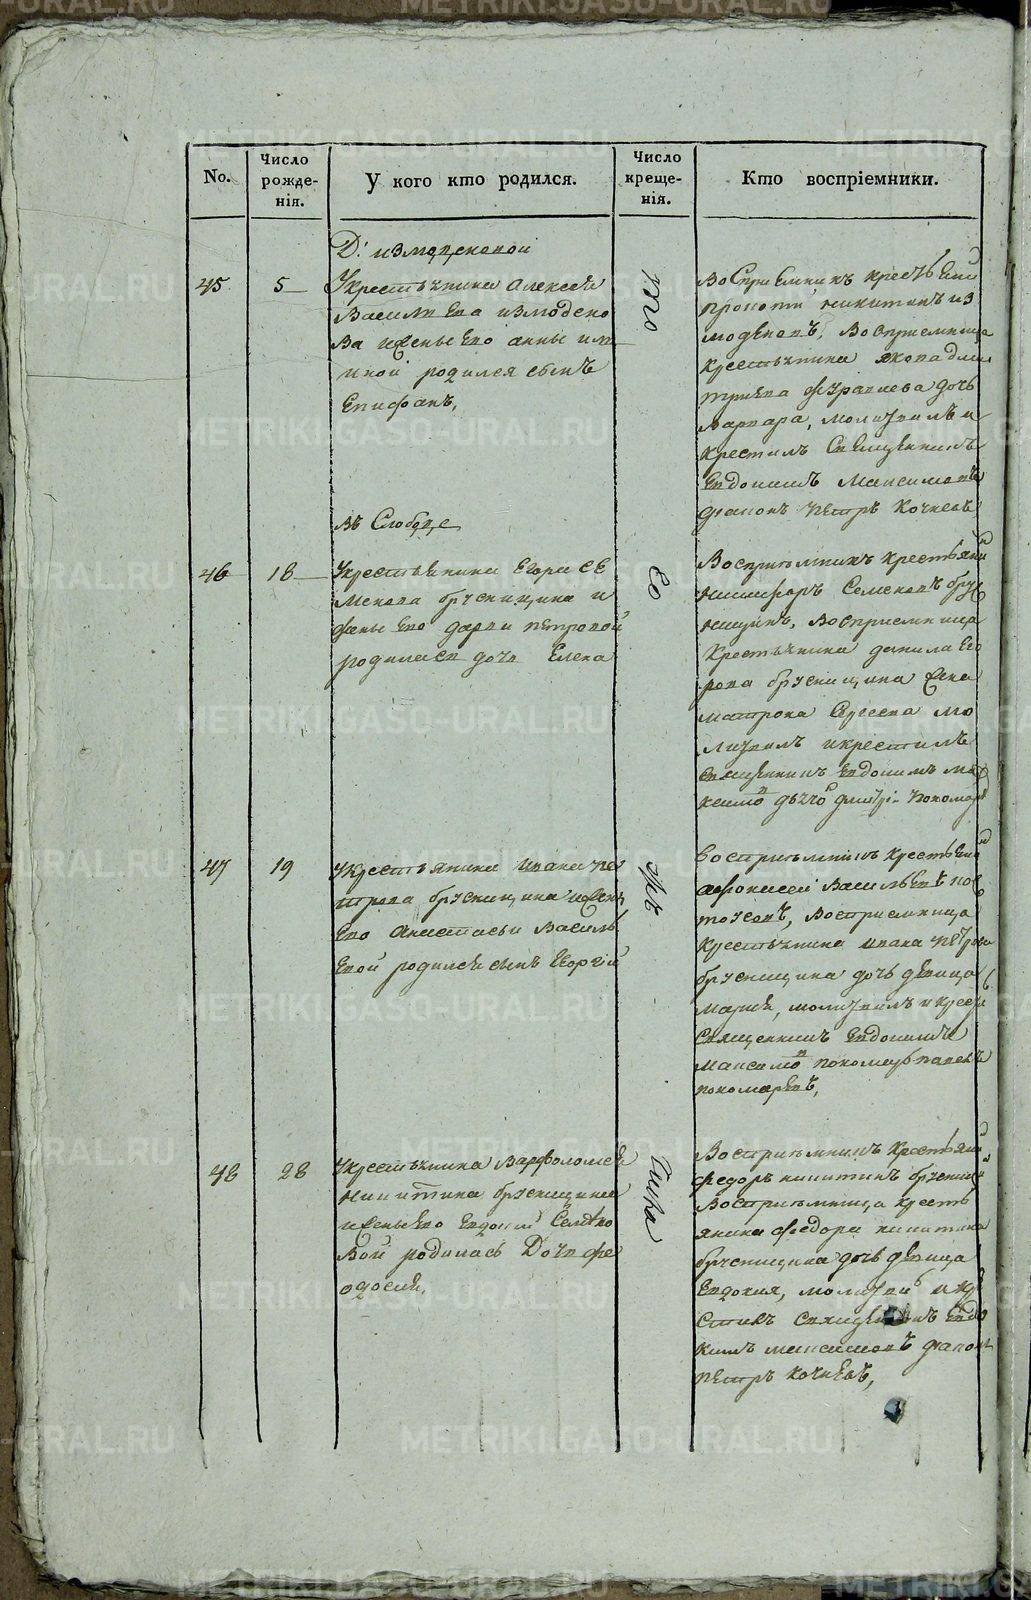 No.
Число рожде-нія.
У кого кто родился.
Число креще-нія.
Кто воспріемники.
Д: измоденовой
45
5
У крестьянина Алексея
Василиева измодено
ва и жены его анны
родился сынъ
Епифанъ,
того
Воспріемникъ крестьянинъ
никитинъ из
моденовъ, Воспріемница
крестьянина якова дми
тріева журавлева дочь
варвара, молитвилъ и
крестилъ Священникъ
Евдокимъ Максимовъ
діаконъ Петръ Кочневъ
въ Слободе
46
18
У крестьянина Егора Се
менова брусницина и
жены его дарьи петровой
родилась дочь Елена
Воспріемникъ крестьянинъ
Никифоръ Семеновъ брус
ницынъ, воспріемница
крестьянина данила Его
рова брусницина жена
матрона молитвилъ и крестилъ
священникъ Евдокимъ Ма
ксимо
47
19
У крестьянина ивана пе
трова брусницина и жены
его Анастасьи Василь
евой родился сынъ Георгій
воспріемникъ крестьянинъ
афонасей Васильевъ
воспріемница
крестьянина ивана петрова
брусницина дочь девица
марія, молитвилъ и крест
священникъ Евдокимъ
максимо
пономаревъ,
48
28
У крестьянина Варфоломея
Никитина брусницина
и жены его Евдокіи
родилась Дочь фе
одосія,
Воспріемникъ крестьянинъ
федоръ никитинъ брусницинъ
Воспріемница кресть
янина федора никитина
брусницина дочь девица
Евдокия, молитви и кре
стилъ священникъ Евдо
кимъ максимовъ діаконъ
петръ кочневъ,
METRIKI.GASO-URAL.RU